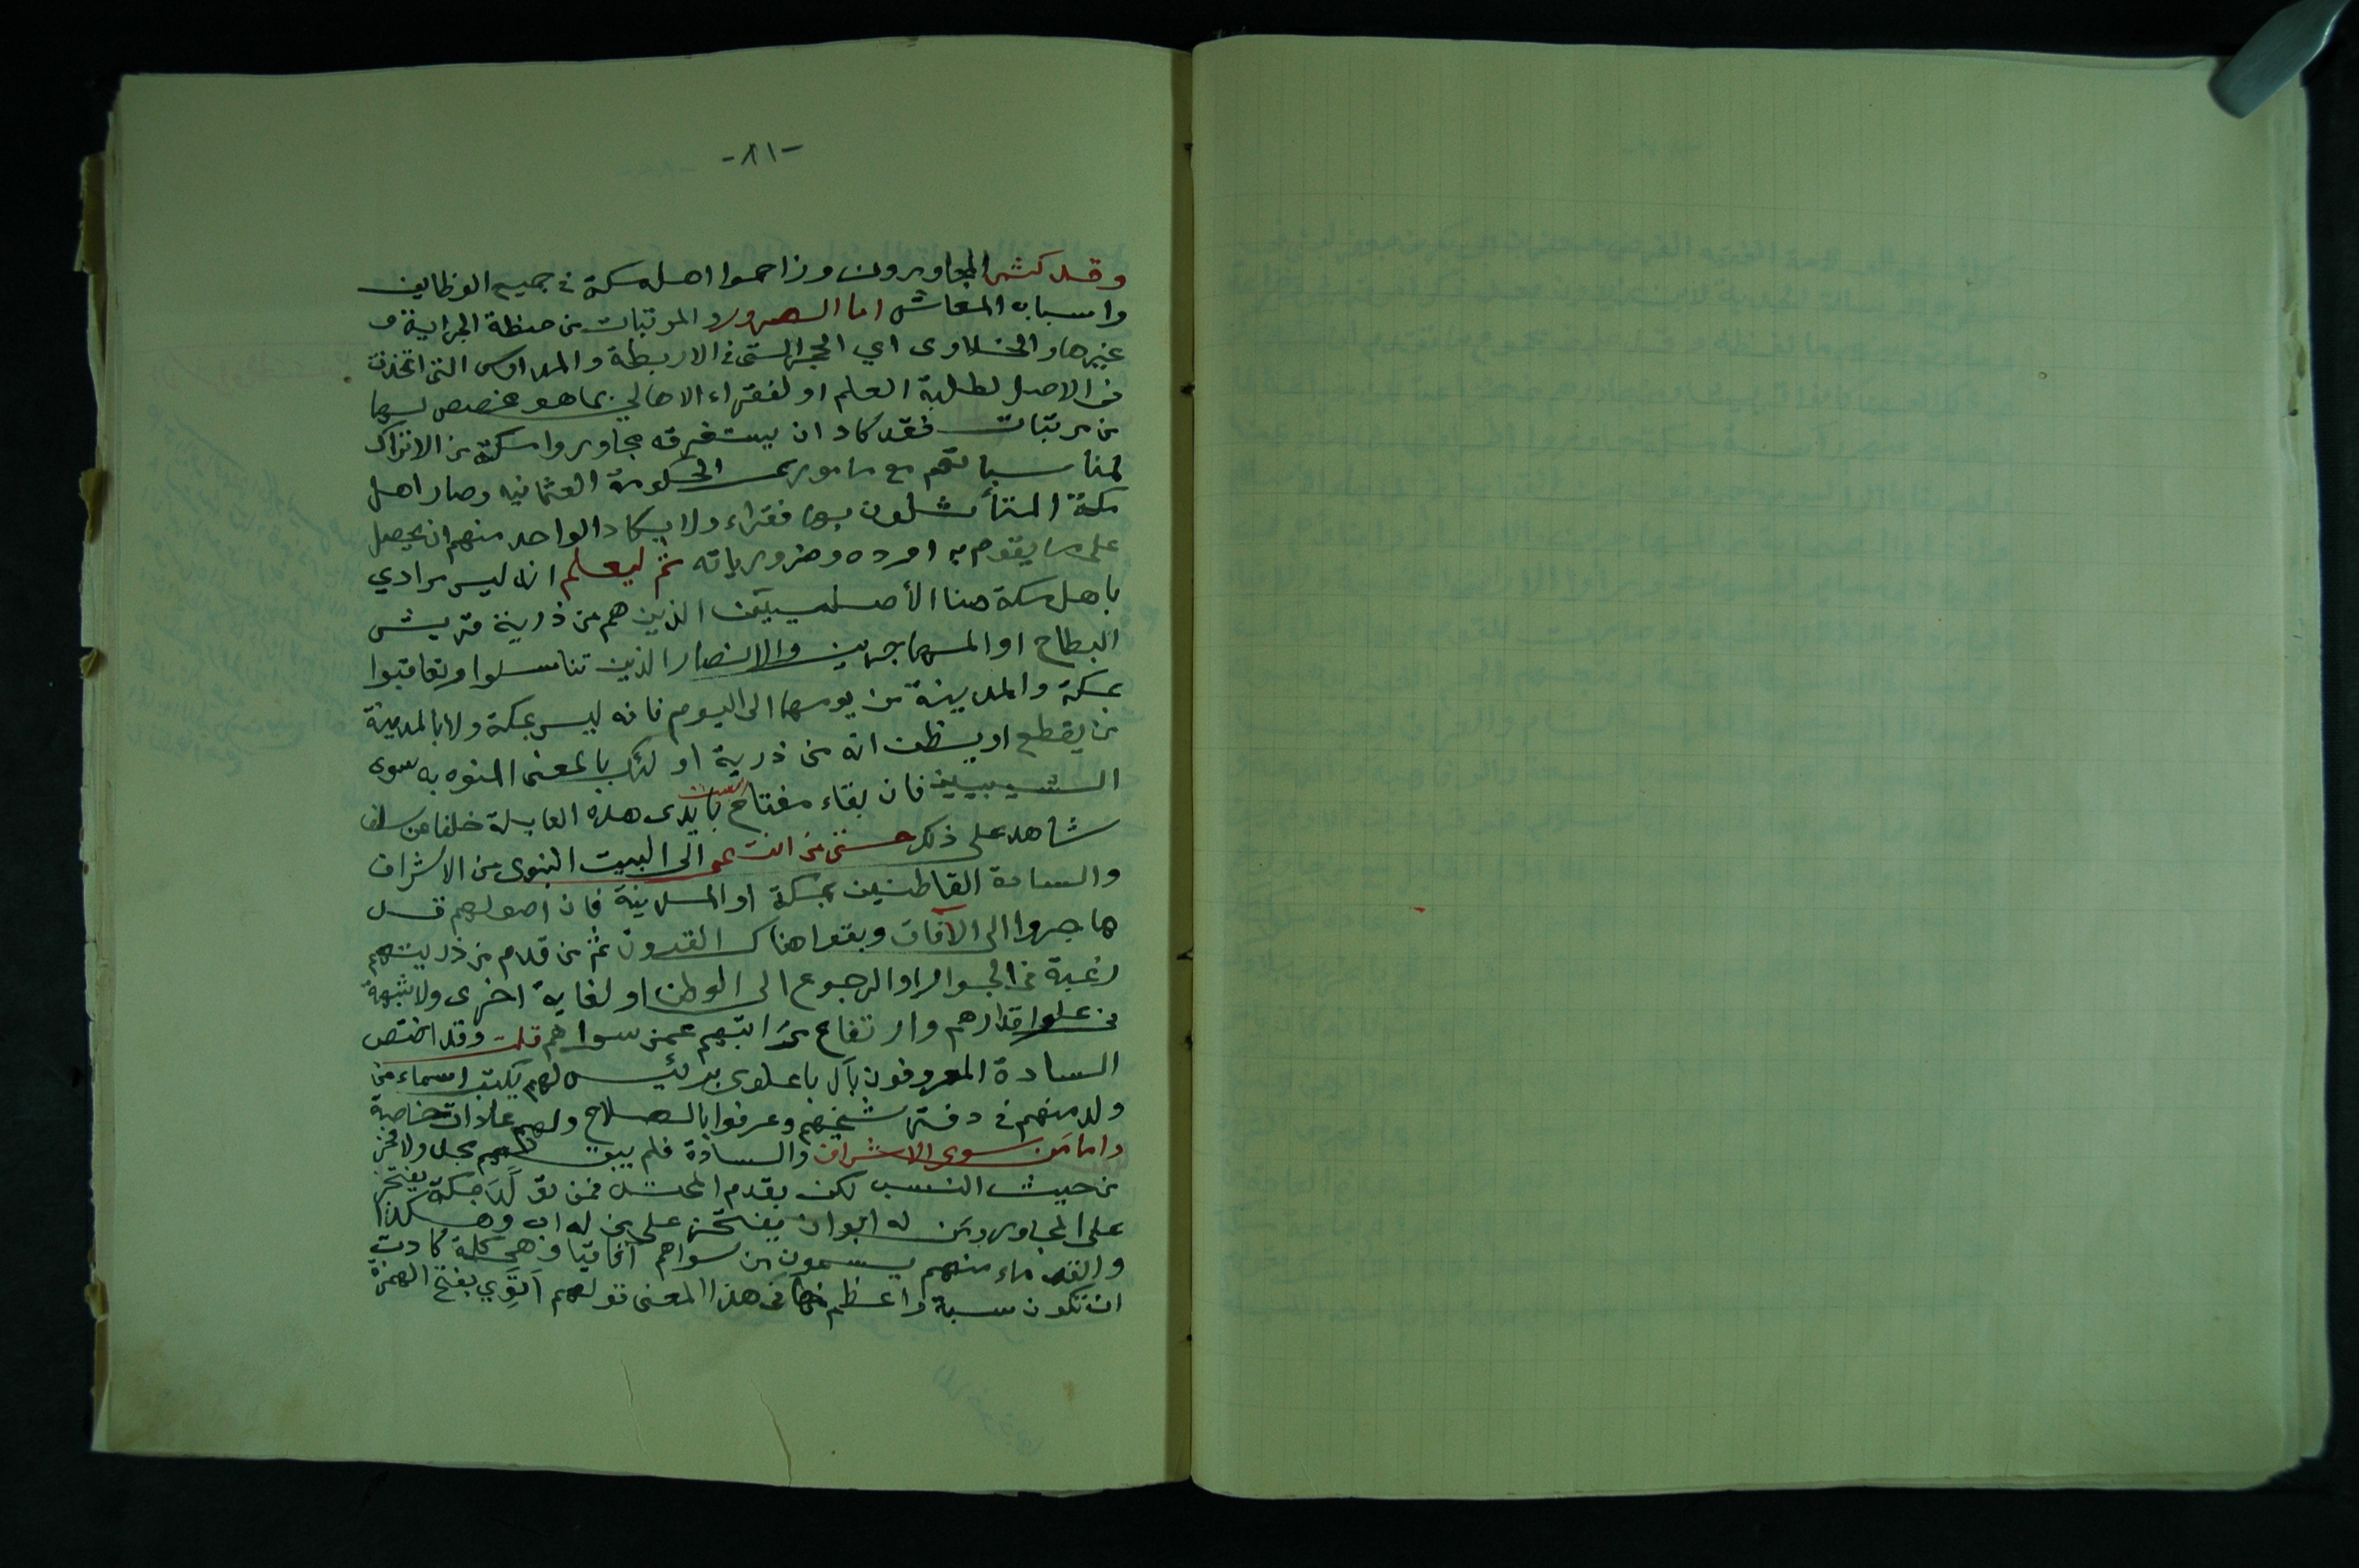 -٨١-
وقد كثر المجاورون وزاحموا اهل مكة في جميع الوظايف
واسباب المعاش اما الصرور والمرتبات من حنطة الجراية و
غيرها والخلاوى اي الحجر التى فى الاربطة والمدارس التى اتخذت
فى الاصل لطلبة العلم او لفقراء الاهالي بما هو مخصص لها
من مرتبات فقد كاد ان يستغرقه مجاوروا مكة من الاتراك
لمناسباتهم مع مامورى الحكومة العثمانيه وصار اهل
مكة المتأثلون بها فقراء ولا يكاد الواحد منهم ان يحصل
على ما يقوم به اوده وضرورياته ثم ليعلم انه ليس مرادي
باهل مكة هنا الأصليين الذين هم من ذرية قريش
البطاح او المهاجرين والانصار الذين تناسلوا وتعاقبوا
بمكة والمدينة من يومها الى اليوم فانه ليس بمكة ولا بالمدينة
من يقطع او يظن انه من ذرية اولئك بالمعنى المنوه به سوى
الشيبيين فان بقاء مفتاح البيت بايدى هذه العايلة خلفا عن سلف
شاهد على ذلك حتى من انتموا الى البيت النبوى من الاشراف
والسادة القاطنين بمكة او المدينة فان اصولهم قد
هاجروا الى الآفاق وبقوا هناك القرون ثم من قدم من ذريتهم
رغبة فى الجوار او الرجوع الى الوطن او لغاية اخرى ولا شبهة
فى علو اقدارهم وارتفاع مراتبهم عمن سواهم قلت وقد اختص
السادة المعروفون بآل باعلوى برئيس لهم يكتب اسماء من
ولد منهم فى دفتر شيخهم وعرفوا بالصلاح ولهم عادات خاصة
واما من سوى الاشراف والسادة فلم يبق لهم محل ولا فخر
من حيث النسب لكن بقدم المحتد فمن تولد بمكة يفتخر
على المجاور ومن له ابوان يفتخر على من له اب وهكذا
والقدماء منهم يسمون من سواهم آفاقيا وهى كلة كادت
ان تكون سبة واعظم منها فى هذا المعنى قولهم اَتَوِي بفتح الهمزة